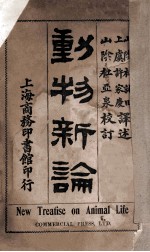 上虞許家慶譯述
山陰杜亞泉校訂
動物新論
上海商務印書館印行
New Treatise on Animal Life
COMMERCIAL PRESS, LTD.